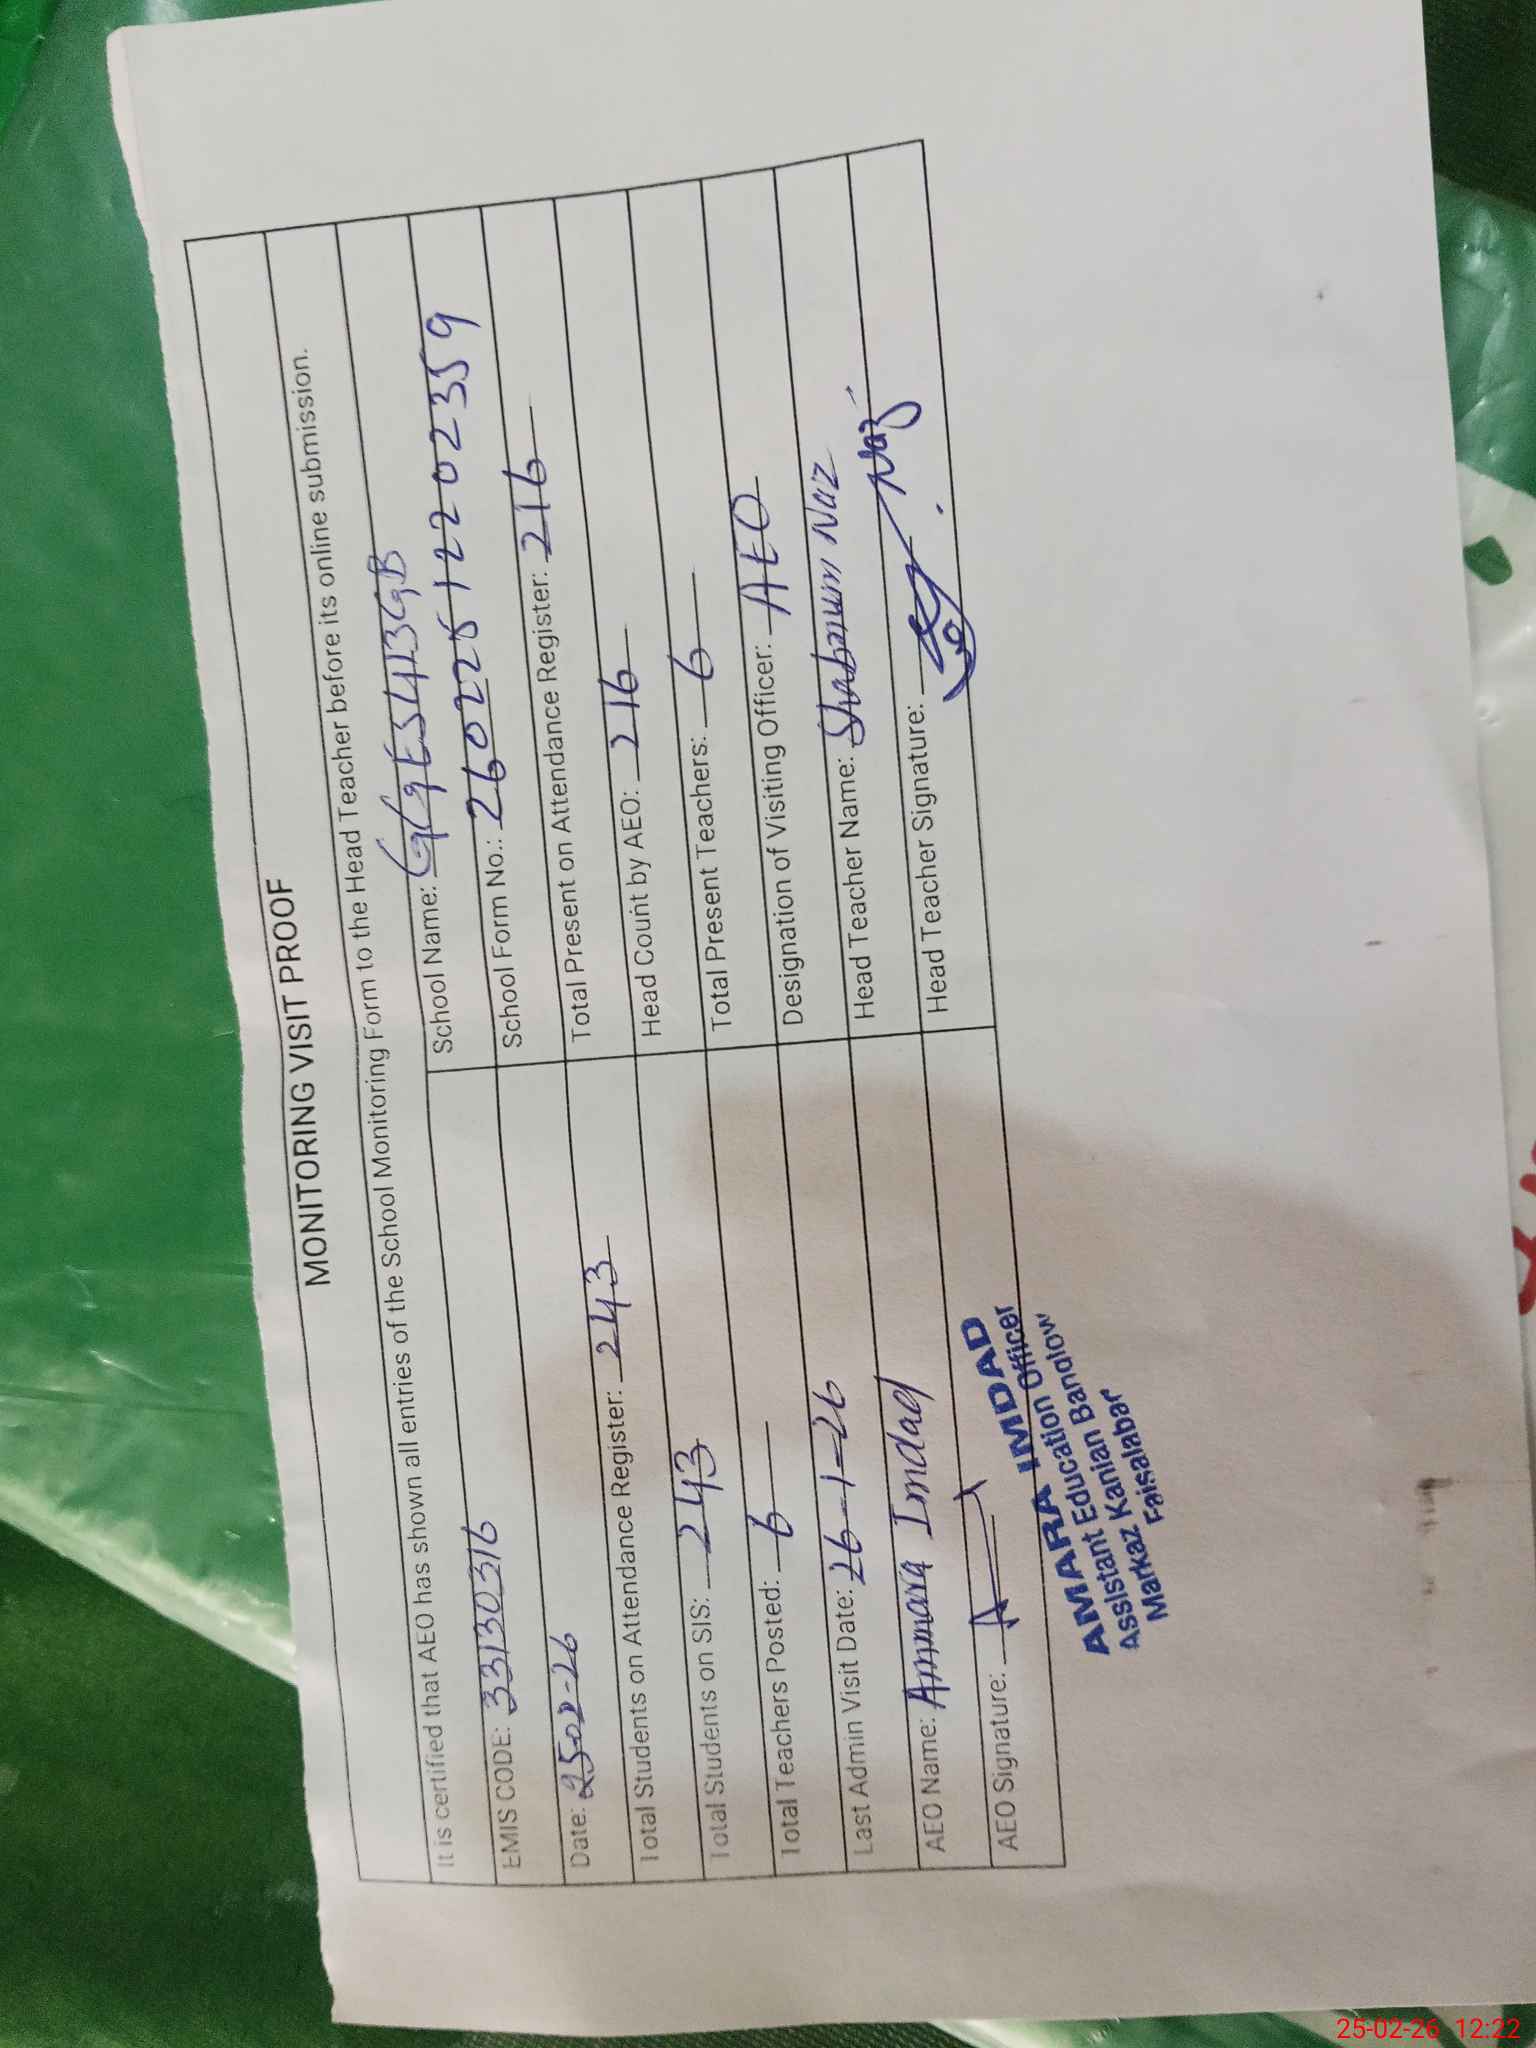 MONITORING VISIT PROOF
It is certified that AEO has shown all entries of the School Monitoring Form to the Head Teacher before its online submission.
EMIS CODE: 33130316 School Name: GGES413GB
Date: 2502-26 School Form No.:
Total Students on Attendance Register: 243 Total Present on Attendance Register: 216
Total Students on SIS: 243 Head Count by AEO: 216
Total Teachers Posted: 6 Total Present Teachers: 6
Last Admin Visit Date: 26-1-26 Designation of Visiting Officer: AEO
AEO Name: Ammara Imdad Head Teacher Name: Shabnum Naz
AEO Signature: Head Teacher Signature: Naz
AMARA IMDAD
Assistant Education Officer
Markaz Kanian Banglow
Faisalabar
25-02-26 12:22